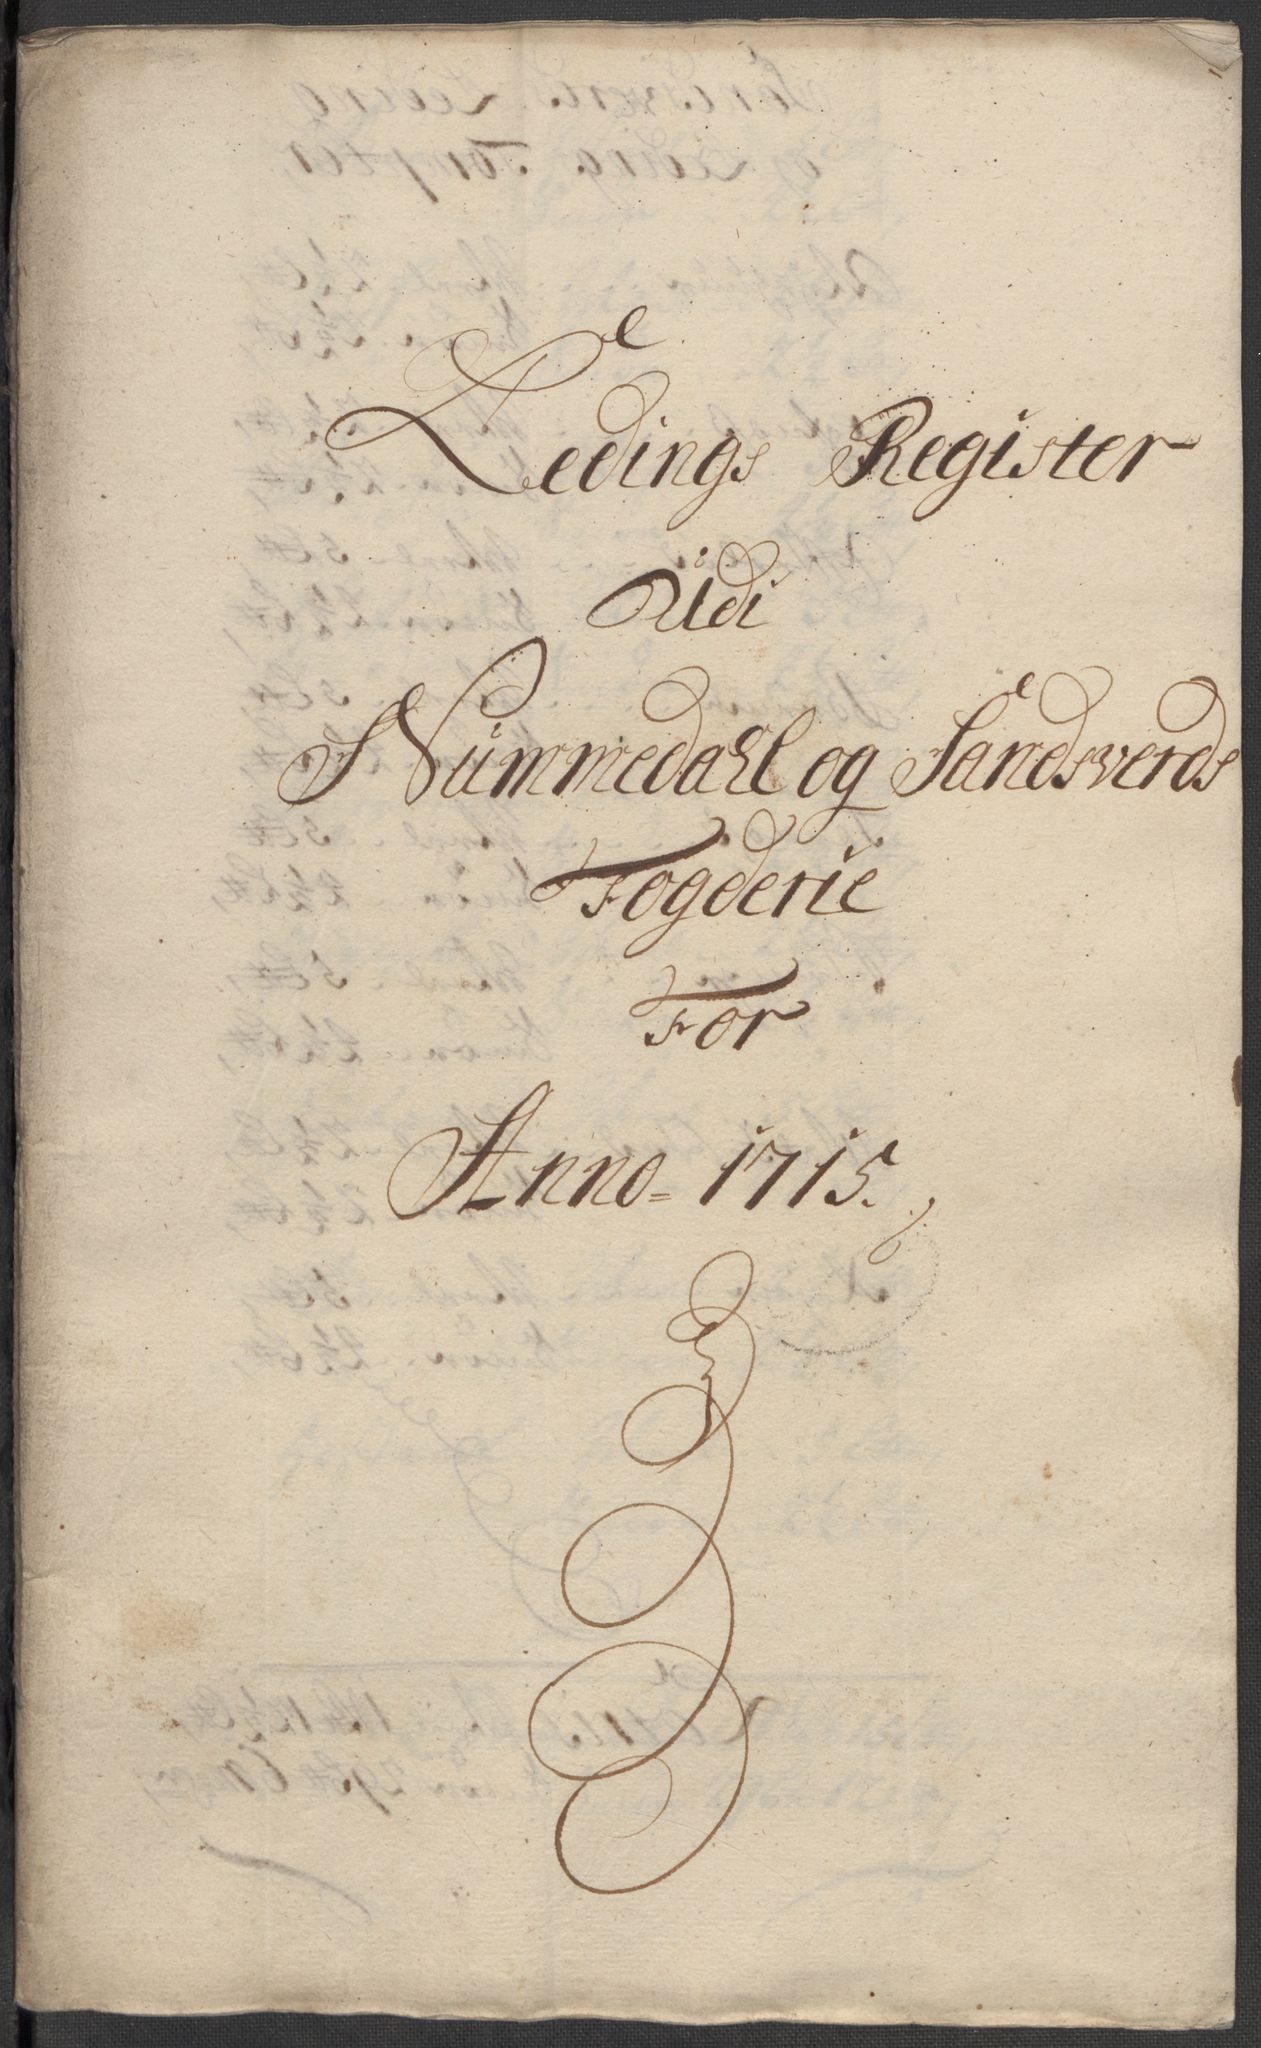 Ledings Register
Udi
Nummedahl og Sandsverds
Fogderie
For
Anno = 1715.